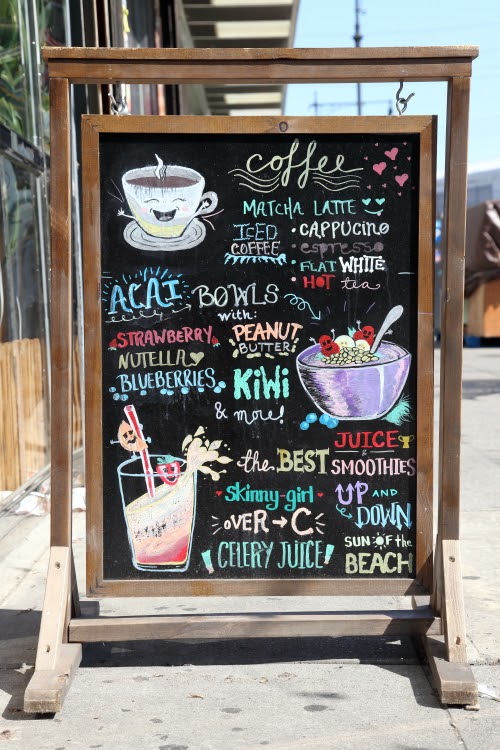 coffee
MATCHA LATTE
ICED COFFEE
• CAPPUCINO
• espresso
• FLAT WHITE
• HOT tea
ACAI BOWLS
with:
STRAWBERRY
NUTELLA
BLUEBERRIES
PEANUT
BUTTER
KiWi
& more!
the BEST JUICE & SMOOTHIES
skinny-girl
OVER → C
CELERY JUICE
UP AND
DOWN
SUN OF the
BEACH